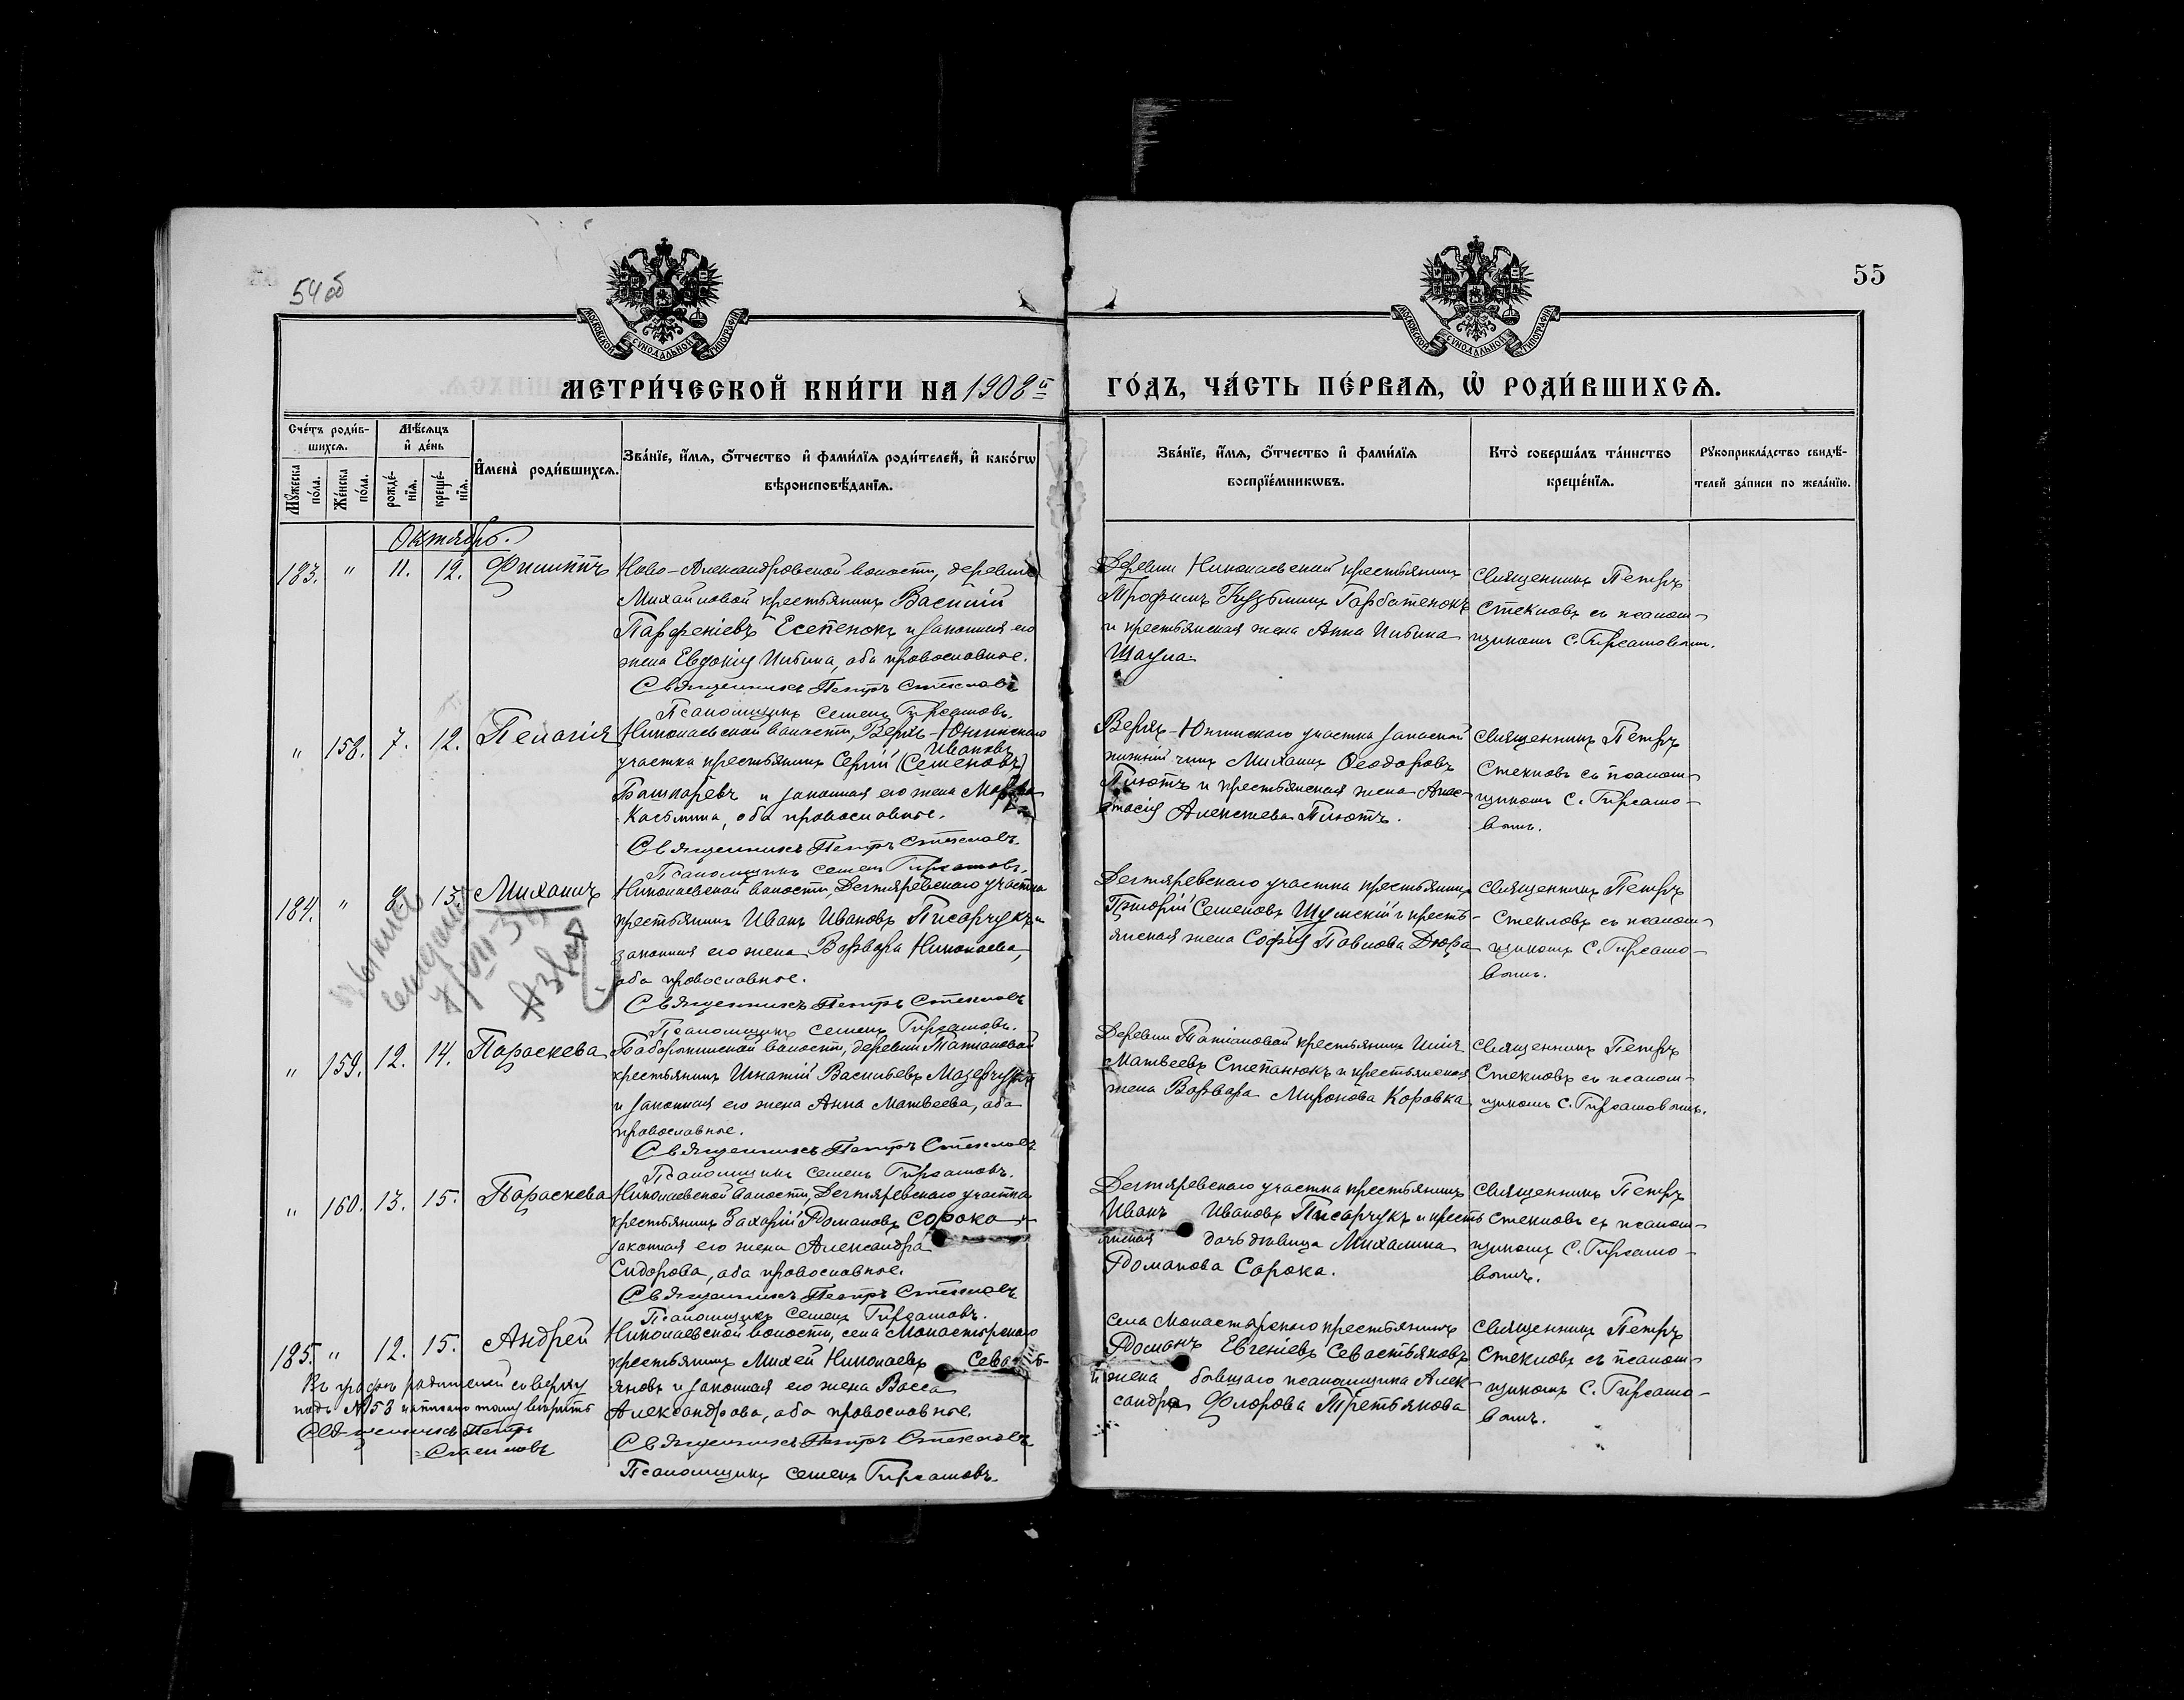 54 об
55
МОСКОВСКОЙ СУНОДАЛЬНОЙ ТИПОГРАФІИ
МОСКОВСКОЙ СУНОДАЛЬНОЙ ТИПОГРАФІИ
МЕТРИ́ЧЕСКОЙ КНИ́ГИ НА 1908 й
ГО́ДЪ, ЧА́СТЬ ПЕ́РВАѦ, Ѡ҆ РОДИ́ВШИХСѦ.
Сче́тъ роди́в-
шихсѧ.
Мѣ́сѧцъ
и҆ де́нь
Мꙋ́жеска по́ла.
Же́нска по́ла.
рожде́-
нїѧ.
креще́-
нїѧ.
И҆мена̀ роди́вшихсѧ.
Зва́нїе, и҆́мѧ, ѻ҆́тчество и҆ фами́лїѧ роди́телей, и҆ како́гѡ
вѣроисповѣ́данїѧ.
Зва́нїе, и҆́мѧ, ѻ҆́тчество и҆ фами́лїѧ
воспрїе́мникѡвъ.
Кто̀ соверша́лъ та́инство
креще́нїѧ.
Рꙋкоприкла́дство свидѣ́-
телей за́писи по жела́нїю.
Октябрь.
183. " 11. 12. Филиппъ
Ново-Александровской волости, деревни
Михайловой крестьянинъ Василій
Парфеніевъ Есепенокъ и законная его
жена Евдокія Ильина, оба православные.
Священникъ Петръ Стекловъ
Псаломщикъ Семенъ Гирсамовъ.
Деревни Николаевской крестьянинъ
Трофимъ Кузьминъ Горбатенокъ
и крестьянская жена Анна Ильина
Шаула.
Священникъ Петръ
Стекловъ съ псалом-
щикомъ С. Гирсамовымъ.
" 158. 7. 12. Пелагія
Николаевской волости, Верхъ-Юнгинскаго
Ивановъ
участка крестьянинъ Сергій (Семеновъ)
Башкаревъ и законная его жена Марѳа
Касьмина, оба православные.
Священникъ Петръ Стекловъ.
Псаломщикъ Семенъ Гирсамовъ.
Верхъ-Юнгинскаго участка запасной
нижній чинъ Михаилъ Ѳеодоровъ
Плютъ и крестьянская жена Анас-
тасія Алексѣева Плютъ.
Священникъ Петръ
Стекловъ съ псалом-
щикомъ С. Гирсамо-
вымъ.
184. " 8. 13. Михаилъ
Николаевской волости, Дегтяревскаго участка
крестьянинъ Иванъ Ивановъ Писарчукъ и
законная его жена Варвара Николаева,
оба православные.
Священникъ Петръ Стекловъ
Псаломщикъ Семенъ Гирсамовъ.
Дегтяревскаго участка крестьянинъ
Григорій Семеновъ Шумскій и кресть-
янская жена Софія Павлова Дюра
Священникъ Петръ
Стекловъ съ псалом-
щикомъ С. Гирсамо-
вымъ.
" 159. 12. 14. Параскева
волости, деревни Татіановой
крестьянинъ Игнатій Васильевъ
и законная его жена Анна Матвеева, оба
православные.
Священникъ Петръ Стекловъ
Псаломщикъ Семенъ Гирсамовъ.
Деревни Татіановой крестьянинъ Илія
Матвеевъ Степанюкъ и крестьянская
жена Варвара Миронова Коровка
Священникъ Петръ
Стекловъ съ псалом-
щикомъ С. Гирсамовымъ.
" 160. 13. 15. Параскева
Николаевской волости, Дегтяревскаго участка
крестьянинъ Захарій Романовъ Сорока и
законная его жена Александра
Сидорова, оба православные.
Священникъ Петръ Стекловъ
Псаломщикъ Семенъ Гирсамовъ.
Дегтяревскаго участка крестьянинъ
Иванъ Ивановъ Писарчукъ и кресть
янская дочь дѣвица Михалина
Романова Сорока.
Священникъ Петръ
Стекловъ съ псалом-
щикомъ С. Гирсамо-
вымъ.
185. " 12. 15. Андрей
Николаевской волости, села Монастырскаго
крестьянинъ Михей Николаевъ Севасть-
яновъ и законная его жена Васса
Александрова, оба православные.
Священникъ Петръ Стекловъ
Псаломщикъ Семенъ Гирсамовъ.
Села Монастырскаго крестьянинъ
Романъ Евгеніевъ Севастьяновъ
и жена бывшаго псаломщика Алек-
сандра Флорова Третьякова
Священникъ Петръ
Стекловъ съ псалом-
щикомъ С. Гирсамо-
вымъ.
Въ графѣ родителей сверху
подъ № 158 написано тому вѣрить
Священникъ Петръ
Стекловъ